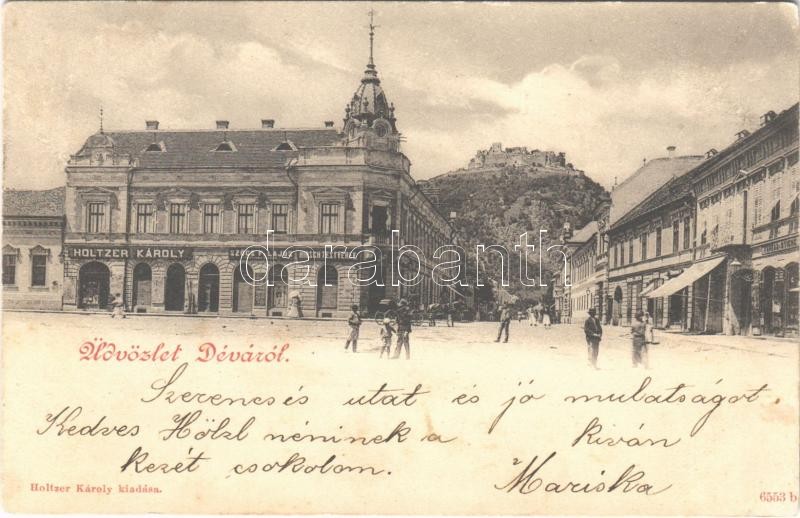 HOLTZER KÁROLY
darabanth.com
Üdvözlet Déváról.
Szerencsés utat és jó mulatságot.
Kedves Hölzl néninek a kiván
kezét csokolom.
Mariska
Holtzer Károly kiadása.
6553 b